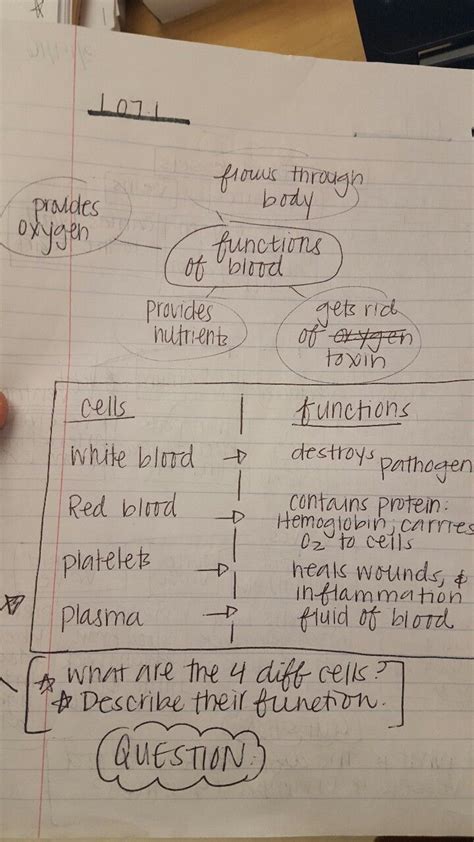 1071
flows through
body
provides
oxygen
functions
of blood
provides
nutrients
gets rid
of oxygen
toxin
cells functions
White blood → destroys pathogen
Red blood → contains protein:
Hemoglobin, carries
O2 to cells
platelets → heals wounds, &
inflammation
plasma → fluid of blood
What are the 4 diff cells?
Describe their function.
QUESTION